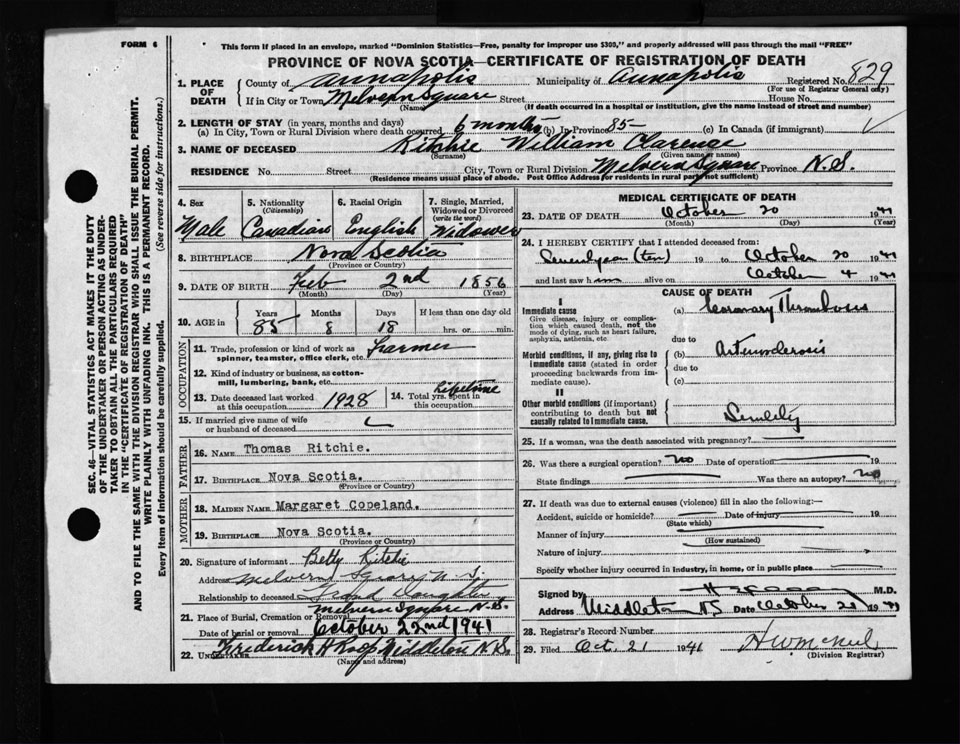 FORM 6
This form if placed in an envelope, marked "Dominion Statistics—Free, penalty for improper use $300," and properly addressed will pass through the mail "FREE"
PROVINCE OF NOVA SCOTIA—CERTIFICATE OF REGISTRATION OF DEATH
1. PLACE OF DEATH County of Annapolis Municipality of Annapolis Registered No. 829
(For use of Registrar General only)
If in City or Town Melvern Square Street House No.
(Name) (If death occurred in a hospital or institution, give the name instead of street and number)
2. LENGTH OF STAY (in years, months and days)
(a) In City, Town or Rural Division where death occurred 6 months (b) In Province 85 - (c) In Canada (if immigrant)
3. NAME OF DECEASED Ritchie William Clarence
(Surname) (Given name or names)
RESIDENCE No. Street City, Town or Rural Division Melvern Square Province N.S.
(Residence means usual place of abode. Post Office Address for residents in rural parts not sufficient)
4. Sex 5. Nationality (Citizenship) 6. Racial Origin 7. Single, Married, Widowed or Divorced (write the word)
Male Canadian English Widower
8. BIRTHPLACE Nova Scotia
(Province or Country)
9. DATE OF BIRTH Feb 2nd 1856
(Month) (Day) (Year)
10. AGE in Years Months Days If less than one day old
85 8 18 hrs. or min.
OCCUPATION
11. Trade, profession or kind of work as spinner, teamster, office clerk, etc. Farmer
12. Kind of industry or business, as cotton-mill, lumbering, bank, etc.
13. Date deceased last worked at this occupation 1928 14. Total yrs. spent in this occupation Lifetime
15. If married give name of wife or husband of deceased
FATHER
16. NAME Thomas Ritchie.
17. BIRTHPLACE Nova Scotia.
(Province or Country)
MOTHER
18. MAIDEN NAME Margaret Copeland.
19. BIRTHPLACE Nova Scotia.
(Province or Country)
20. Signature of informant Betty Ritchie
Address Melvern Square N.S.
Relationship to deceased Grand Daughter
21. Place of Burial, Cremation or Removal Melvern Square N.S.
Date of burial or removal October 22nd 1941
22. UNDERTAKER Frederick H Roop Middleton N.S.
(Name and address)
MEDICAL CERTIFICATE OF DEATH
23. DATE OF DEATH October 20 1941
(Month) (Day)
24. I HEREBY CERTIFY that I attended deceased from:
(ten) 19 to October 20 1941
and last saw him alive on October 4 1941
CAUSE OF DEATH
I
Immediate cause (a) Coronary Thrombosis
Give disease, injury or complication which caused death, not the mode of dying, such as heart failure, asphyxia, asthenia, etc.
due to
Morbid conditions, if any, giving rise to immediate cause (stated in order proceeding backwards from immediate cause). (b) Arteriosclerosis
due to
(c)
II
Other morbid conditions (if important) contributing to death but not causally related to immediate cause. Senility
25. If a woman, was the death associated with pregnancy?
26. Was there a surgical operation? no Date of operation 19
State findings Was there an autopsy? no
27. If death was due to external causes (violence) fill in also the following:—
Accident, suicide or homicide? Date of injury 19
(State which)
Manner of injury
(How sustained)
Nature of injury
Specify whether injury occurred in industry, in home, or in public place
Signed by M.D.
Address Middleton NS Date October 21 1941
28. Registrar's Record Number
29. Filed Oct. 21 1941 H W McNeil
(Division Registrar)
SEC. 46—VITAL STATISTICS ACT MAKES IT THE DUTY
OF THE UNDERTAKER OR PERSON ACTING AS UNDER-
TAKER TO OBTAIN ALL THE PARTICULARS REQUIRED
IN THE "CERTIFICATE OF REGISTRATION OF DEATH"
AND TO FILE THE SAME WITH THE DIVISION REGISTRAR WHO SHALL ISSUE THE BURIAL PERMIT.
WRITE PLAINLY WITH UNFADING INK. THIS IS A PERMANENT RECORD.
Every item of information should be carefully supplied. (See reverse side for instructions.)